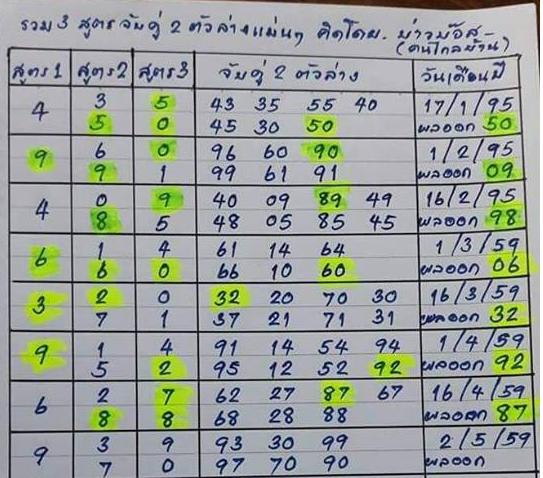 รวม 3 สูตรจับคู่ 2 ตัวล่างแม่นๆ คิดโดย.
(คนไกลบ้าน)
สูตร1 สูตร2 สูตร3 จับคู่ 2 ตัวล่าง วันเดือนปี
4 3 5 43 35 55 40 17/1/95
5 0 45 30 50 ผลออก 50
9 6 0 96 60 90 1/2/95
9 1 99 61 91 ผลออก 09
4 0 9 40 09 89 49 16/2/95
8 5 48 05 85 45 ผลออก 98
6 1 4 61 14 64 1/3/59
6 0 66 10 60 ผลออก 06
3 2 0 32 20 70 30 16/3/59
7 1 37 21 71 31 ผลออก 32
9 1 4 91 14 54 94 1/4/59
5 2 95 12 52 92 ผลออก 92
6 2 7 62 27 87 67 16/4/59
8 8 68 28 88 ผลออก 87
9 3 9 93 30 99 2/5/59
7 0 97 70 90 ผลออก